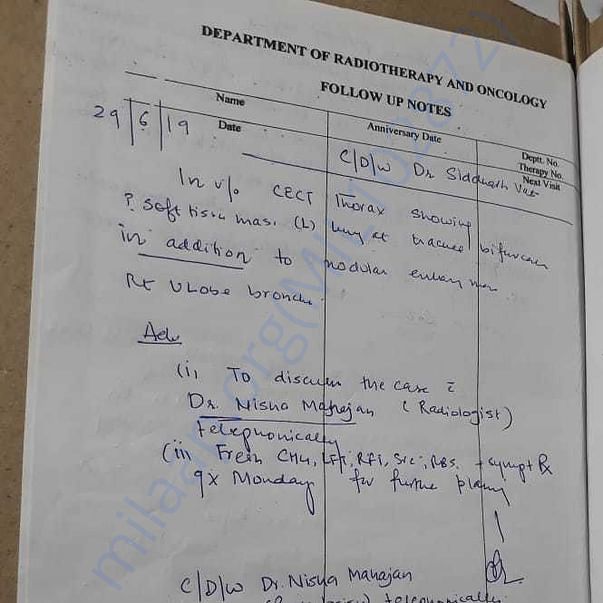 DEPARTMENT OF RADIOTHERAPY AND ONCOLOGY
FOLLOW UP NOTES
Name
Anniversary Date
Deptt. No.
Therapy No.
Next Visit
29/6/19 Date
C/D/W Dr Siddharth
In v/o CECT Thorax showing
? soft tissue mas. (L) lung at bifurcation
in addition to nodular
Rt U Lobe bronchus.
Adv
(i) To discuss the case c̄
Dr. Nisha Mahajan (Radiologist)
telephonically
(ii) Fresh LFT, RFT, RBS. + sympt Rx
Monday for further planning
C/D/W Dr. Nisha Mahajan
telephonically
milaap.org(MIL_1028872)